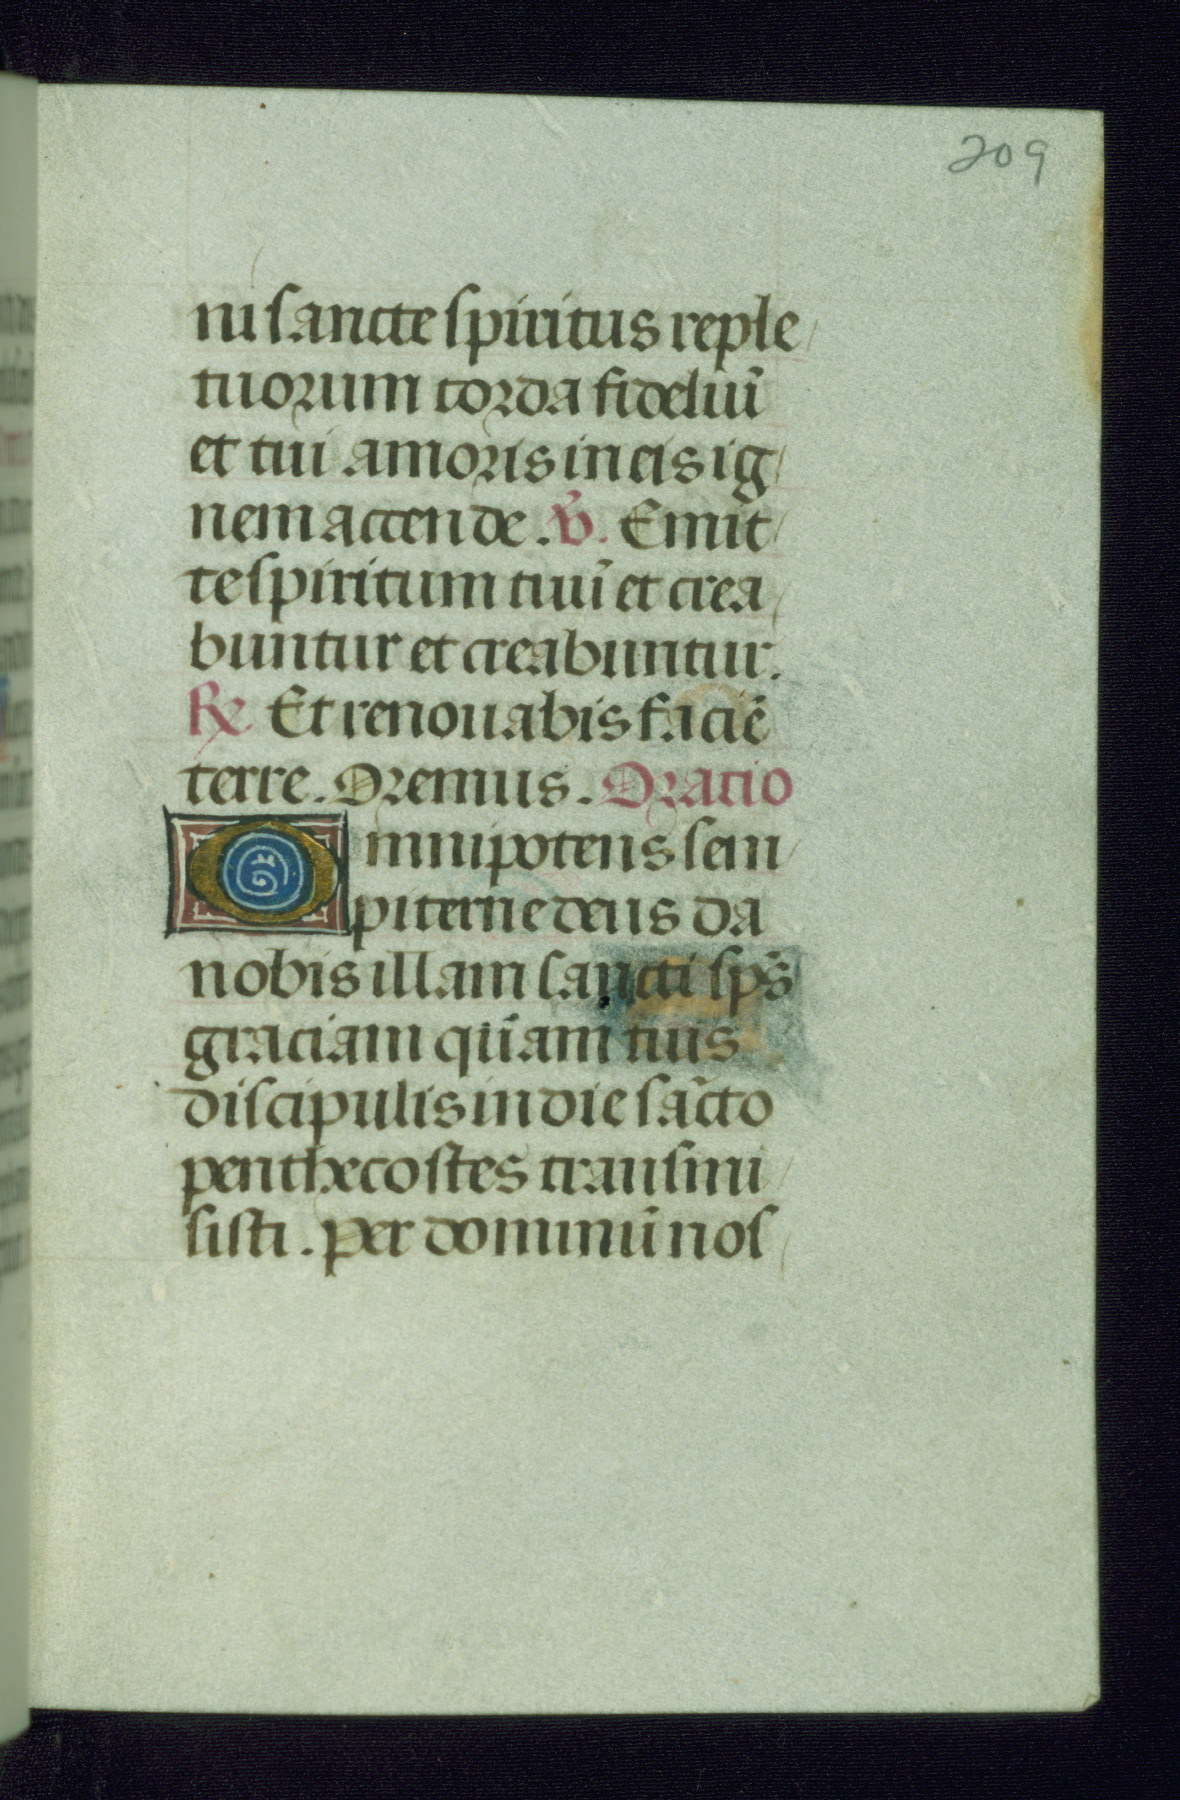 209
ni sancte spiritus reple
tuorum corda fideliū
et tui amoris in eis ig
nem accende. V̄. Emit
te spiritum tuū et crea
buntur et creabuntur.
℞ Et renouabis faciē
terre. Oremus. Oratio
Omnipotens sem
piterne deus da
nobis illam sancti sp̄s
graciam quam tuis
discipulis in die sācto
penthecostes transmi
sisti. per dominū nos